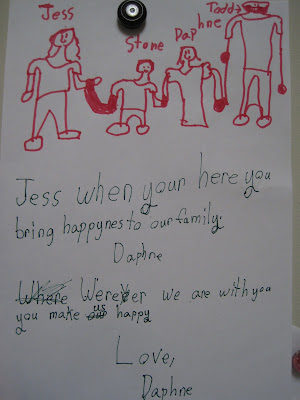 Jess
Stone Daphne Todd
Jess when your here you
bring happynes to our family.
Daphne
Where Werever we are with you
you make our us happy
Love,
Daphne